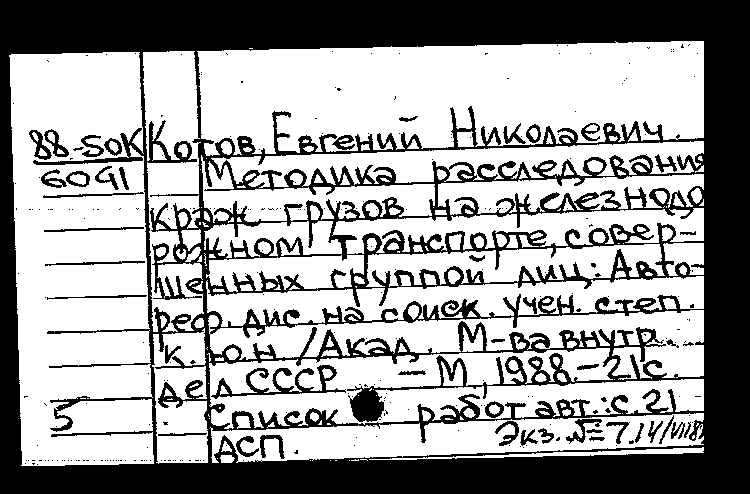 88-50К Котов, Евгений Николаевич.
6091 Методика расследования
краж грузов на железнодо
рожном транспорте, совер-
шенных группой лиц: Авто-
реф. дис. на соиск. учен. степ.
к. ю. н /Акад. М-ва внутр.
дел СССР - М, 1988.-21с.
5 Список работ авт.: с. 21
ДСП. Экз. № 7. 14/VII88